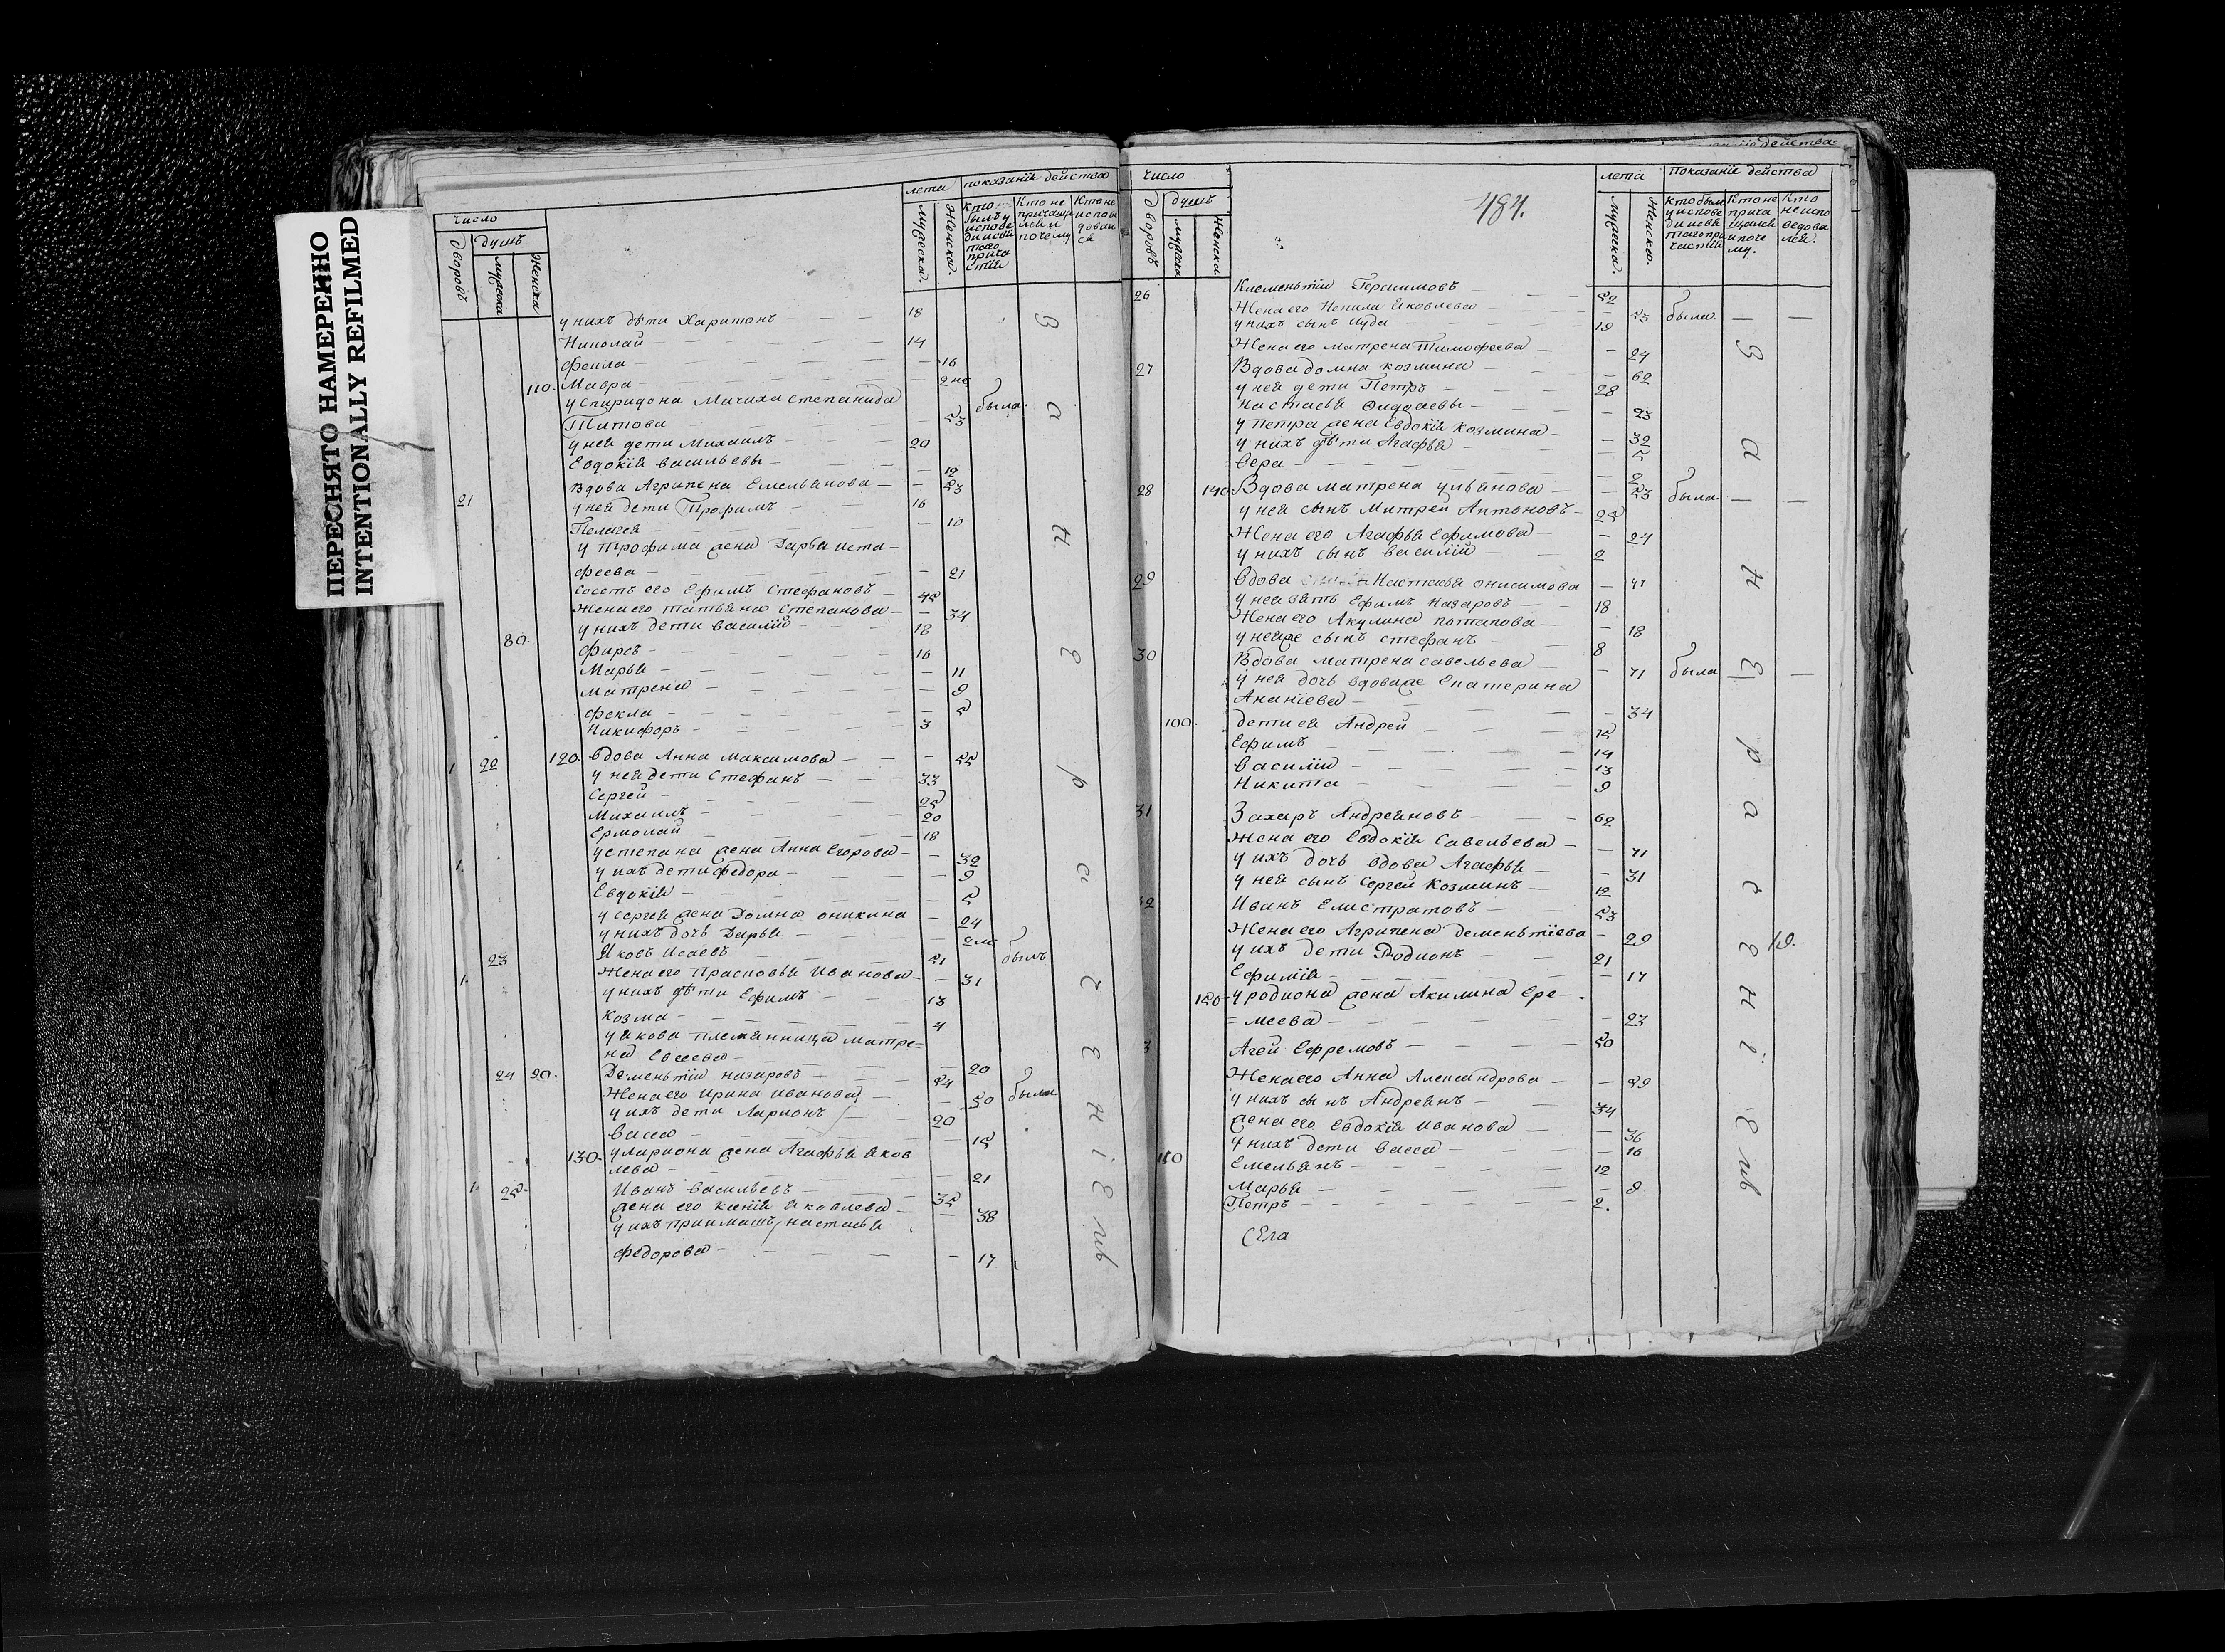 ПЕРЕСНЯТО НАМЕРЕННО
INTENTIONALLY REFILMED
число
дворовъ
душъ
мужеска
женска
лета
мужеска.
женска.
показаніе действа
кто былъ у исповеди и святаго причастия
кто не причащался и почему
кто не исповедовался
у нихъ дѣти Харитонъ — 18
Николай — 14
Фекла — 16
110. Мавра — 2 не
у Спиридона Мачиха Степанида
Титова — 53 была
у ней дети Михаилъ — 20
Евдокія васильевы — 12
21 вдова Агрипена Емельянова — 53
у ней дети Трофимъ — 16
Пелагея — 10
у Трофима жена Дарья иста-
феева — 21
Ефимъ Стефановъ — 45
Жена его татьяна Степанова — 34
80. у нихъ дети василий — 18
фирсъ — 16
Марья — 11
матрена — 9
фекла — 5
Никифоръ — 3
22 120. вдова Анна максимова — 55
у ней дети Стефанъ — 33
Сергей — 25
Михаилъ — 20
Ермолай — 18
у степана жена Анна Егорова — 32
у ихъ дети федора — 9
Евдокія — 5
у сергея жена Домна оникина — 24
у нихъ дочь Дарья — 2
23 Яковъ Исаевъ — 51 былъ
Жена его Прасковья Иванова — 31
у нихъ дѣти Ефимъ — 13
козма — 4
у якова племянница матре=
на Евсеева — 20
24 90. Дементий назаровъ — 54 были
Жена его ирина иванова — 50
у ихъ дети Ларионъ — 20
васса — 15
130. у лариона жена Агафья яков
лева — 21
25. Иванъ васильевъ — 35
жена его ксенія яковлева — 38
у ихъ приимышъ настасья
федорова — 17
за нерачениемъ
число
дворовъ
душъ
мужеска
женска
484.
лета
мужеска.
женска.
Показаніе действа
кто были у исповеди и святаго причастия
кто не причащался и почему.
кто не исповедовался.
26 Клементий Герасимовъ — 52 были. — —
Жена его Ненила яковлева — 53
у нихъ сынъ иуда — 19
Жена его матрена Тимофеева — 24
27 Вдова домна козмина — 62
у ней дети Петръ — 28
настасья — 23
у петра жена Евдокія козмина — 32
у нихъ дѣти Агафья — 5
вера — 2
28 140. Вдова матрена ульянова — 53 была. — —
у ней сынъ Митрей Антоновъ — 25
Жена его Агафья Ефимова — 24
у нихъ сынъ василий — 2
29 вдова Настасья онисимова — 47
у ней зять Ефимъ назаровъ — 18
Жена его Акулина потапова — 18
у нейже сынъ стефанъ — 8
30 Вдова матрена савельева — 71 была — —
у ней дочь вдоваже Екатерина
Ананіева — 34
100. дети ея Андрей — 15
Ефимъ — 14
василий — 13
Никита — 9
31 Захаръ Андреяновъ — 62
Жена его Евдокія Савельева — 71
у ихъ дочь вдова Агафья — 31
у ней сынъ Сергей Козминъ — 12
32 Иванъ Елистратовъ — 53
Жена его Агрипена дементіева — 29
у ихъ дети Родионъ — 21
Ефимія — 17
150. у родиона жена Акилина Ере-
= меева — 23
3 Агей Ефремовъ — 50
Жена его Анна Александрова — 59
у нихъ сынъ Андреянъ — 34
жена его Евдокія иванова — 36
у нихъ дети васса — 16
110 Емельянъ — 12
Марья — 9
Петръ — 2.
Села
за нерачениемъ